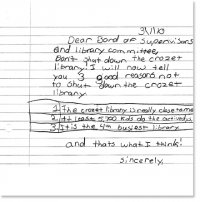 3/1/10
Dear Bord of supervisors
and library committee,
Don't shut down the crozet
library! I will now tell
you 3 good reasons not
to shut down the crozet
library.
1. The crozet library is really close to me
2. At least 5,700 kids do the
3. It is the 4th busiest library
and thats what I think!
sincerely,